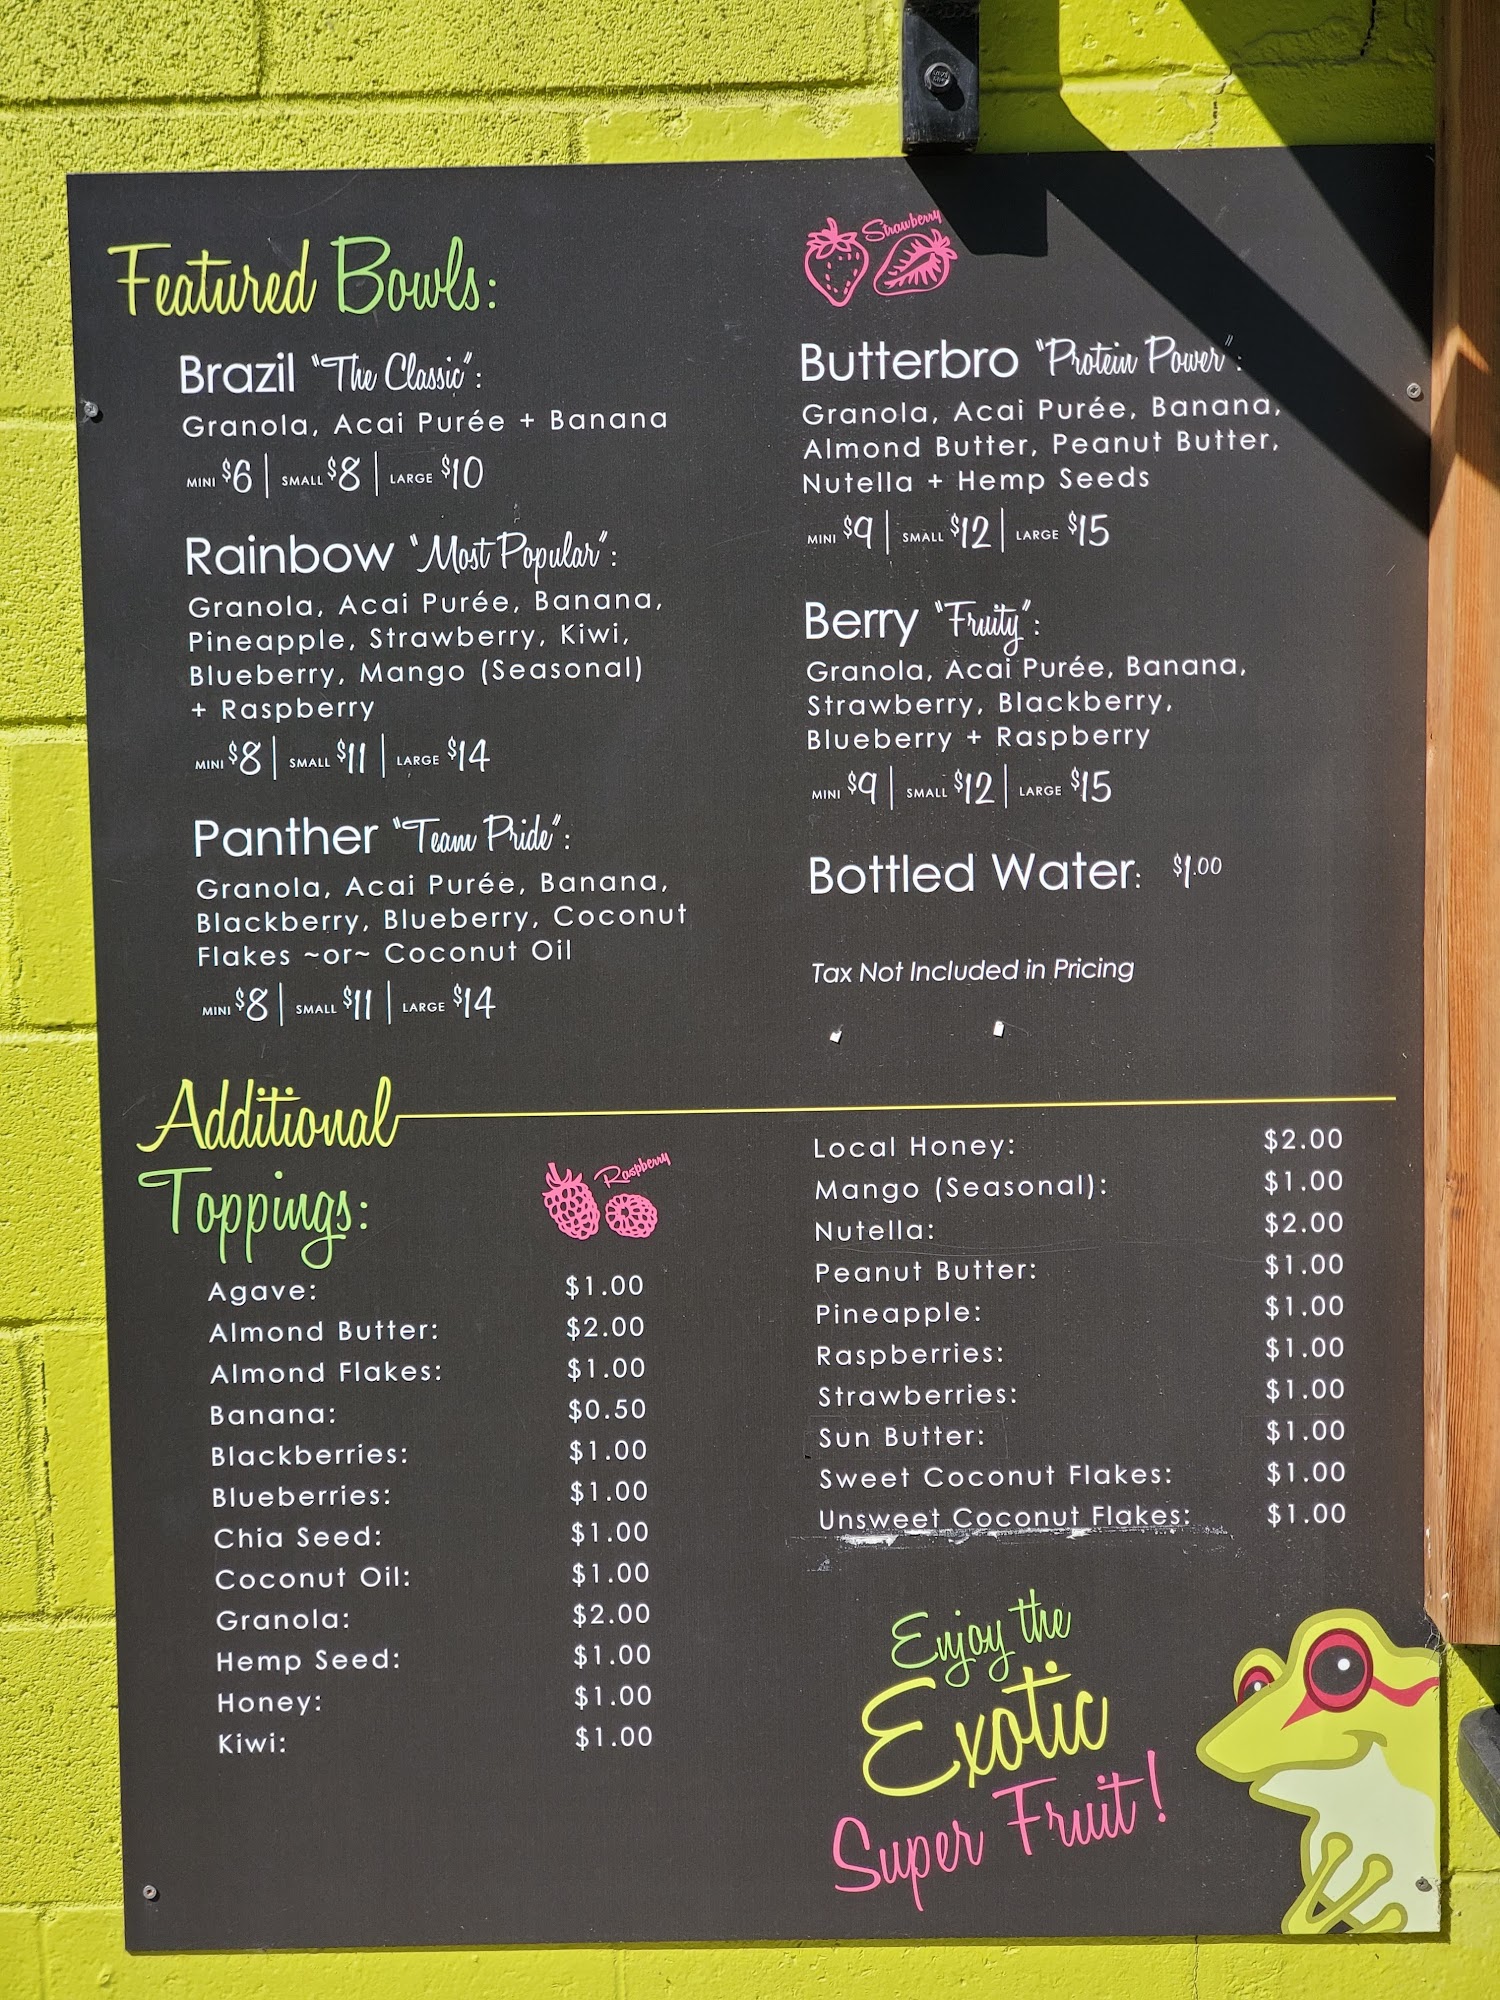 Featured Bowls:
Brazil "The Classic":
Granola, Acai Purée + Banana
MINI $6 | SMALL $8 | LARGE $10
Rainbow "Most Popular":
Granola, Acai Purée, Banana,
Pineapple, Strawberry, Kiwi,
Blueberry, Mango (Seasonal)
+ Raspberry
MINI $8 | SMALL $11 | LARGE $14
Panther "Team Pride":
Granola, Acai Purée, Banana,
Blackberry, Blueberry, Coconut
Flakes ~or~ Coconut Oil
MINI $8 | SMALL $11 | LARGE $14
Strawberry
Butterbro "Protein Power":
Granola, Acai Purée, Banana,
Almond Butter, Peanut Butter,
Nutella + Hemp Seeds
MINI $9 | SMALL $12 | LARGE $15
Berry "Fruity":
Granola, Acai Purée, Banana,
Strawberry, Blackberry,
Blueberry + Raspberry
MINI $9 | SMALL $12 | LARGE $15
Bottled Water: $1.00
Tax Not Included in Pricing
Additional
Toppings:
Raspberry
Agave: $1.00
Almond Butter: $2.00
Almond Flakes: $1.00
Banana: $0.50
Blackberries: $1.00
Blueberries: $1.00
Chia Seed: $1.00
Coconut Oil: $1.00
Granola: $2.00
Hemp Seed: $1.00
Honey: $1.00
Kiwi: $1.00
Local Honey: $2.00
Mango (Seasonal): $1.00
Nutella: $2.00
Peanut Butter: $1.00
Pineapple: $1.00
Raspberries: $1.00
Strawberries: $1.00
Sun Butter: $1.00
Sweet Coconut Flakes: $1.00
Unsweet Coconut Flakes: $1.00
Enjoy the
Exotic
Super Fruit!